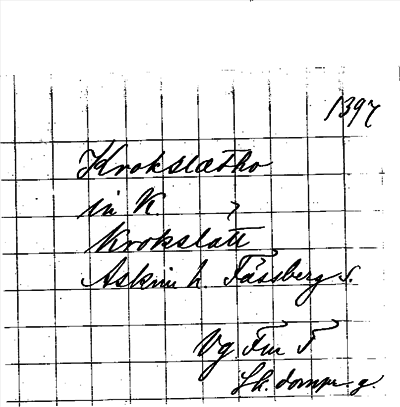 1397
Krokslætho
in K.
Krokslätt
Askim h Fässberg s.
Vg Fm
Sk. dompr. g.